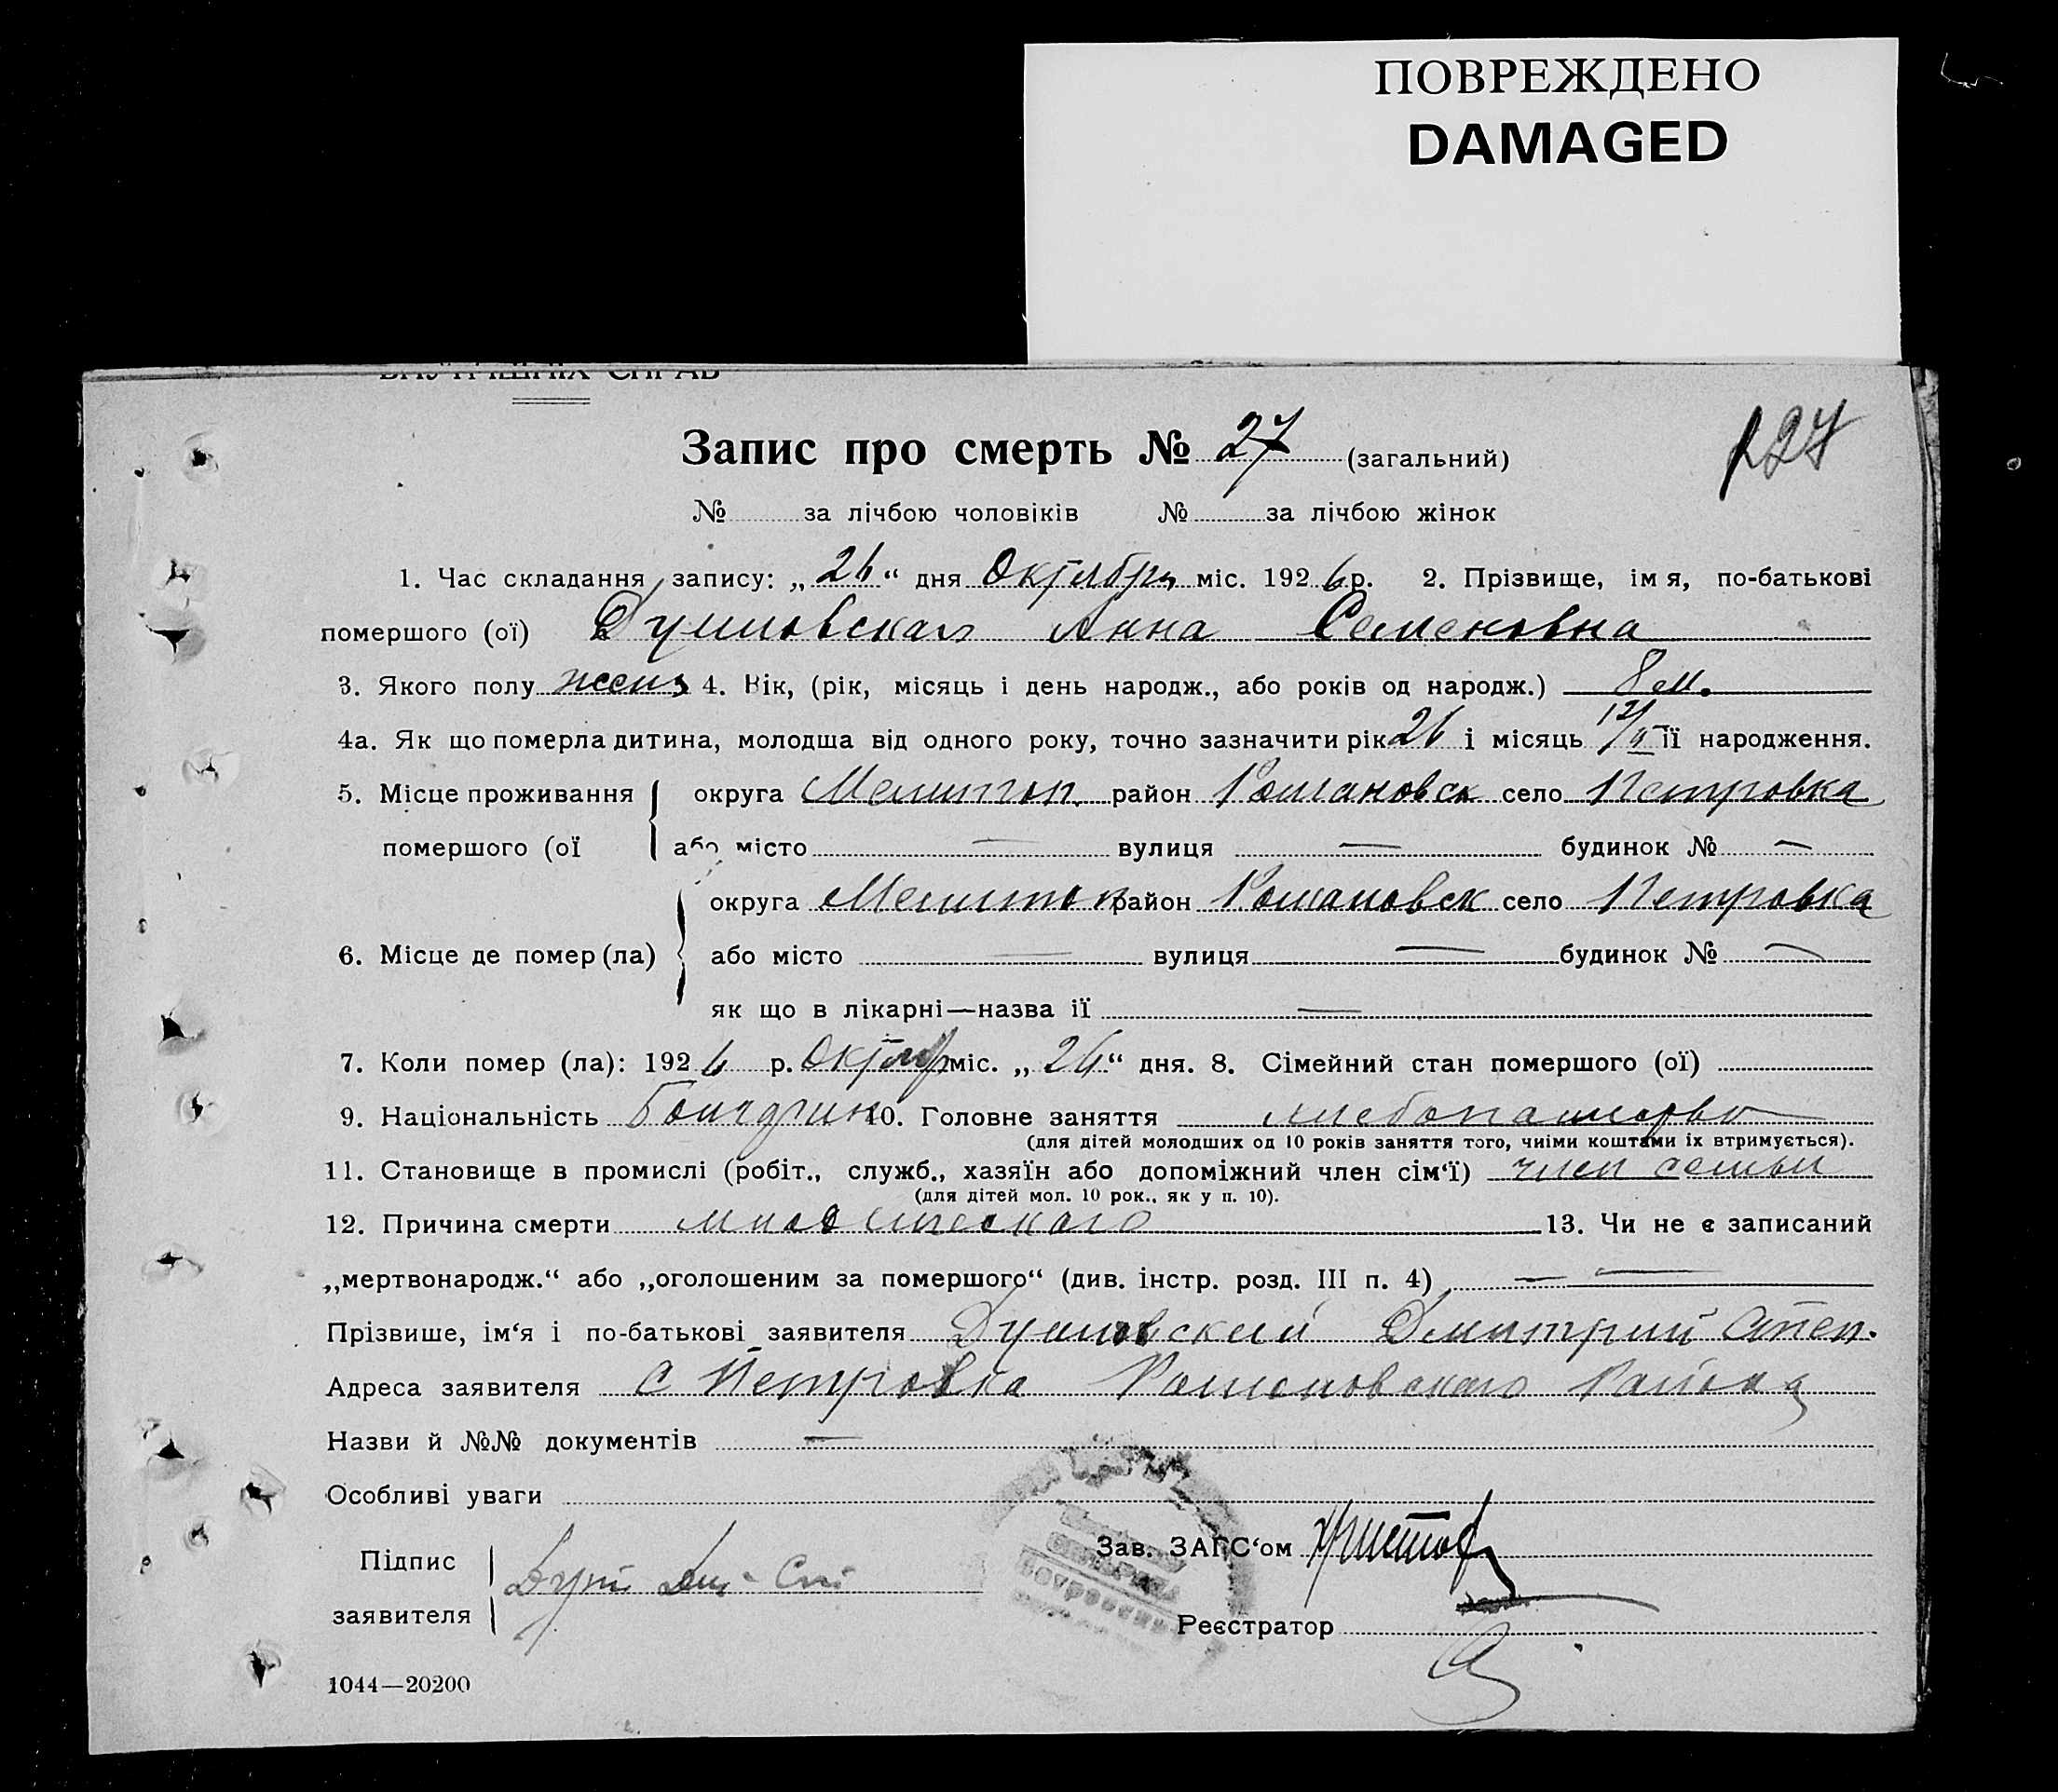 ПОВРЕЖДЕНО
DAMAGED
ВНУТРІШНІХ СПРАВ
Запис про смерть № 27 (загальний)
127
№ за лічбою чоловіків № за лічбою жінок
1. Час складання запису: „26“ дня Октября міс. 1926 р. 2. Прізвище, імя, по-батькові
помершого (ої) Анна Семеновна
3. Якого полу женз 4. Вік, (рік, місяць і день народж., або років од народж.) 8 м.
4а. Як що померла дитина, молодша від одного року, точно зазначити рік 26 і місяць 12/II її народження.
5. Місце проживання округа Мелитоп. район Романовск село Петровка
помершого (ої або місто — вулиця — будинок № —
округа Мелитоп район Романовск село Петровка
6. Місце де помер (ла) або місто — вулиця — будинок № —
як що в лікарні—назва ії —
7. Коли помер (ла): 1926 р. Октяр міс. „26“ дня. 8. Сімейний стан помершого (ої)
9. Національність 10. Головне заняття хлебопашество
(для дітей молодших од 10 років заняття того, чиіми коштами іх втримується).
11. Становище в промислі (робіт., служб., хазяїн або допоміжний член сім‘ї) член семьи
(для дітей мол. 10 рок., як у п. 10).
12. Причина смерти 13. Чи не є записаний
„мертвонародж.“ або „оголошеним за помершого“ (див. інстр. розд. III п. 4) — —
Прізвише, ім‘я і по-батькові заявителя Дмитрий Степ.
Адреса заявителя с Петровка Романовского Района
Назви й №№ документів —
Особливі уваги
Зав. ЗАГС‘ом
Підпис
заявителя
Реєстратор
1044—20200